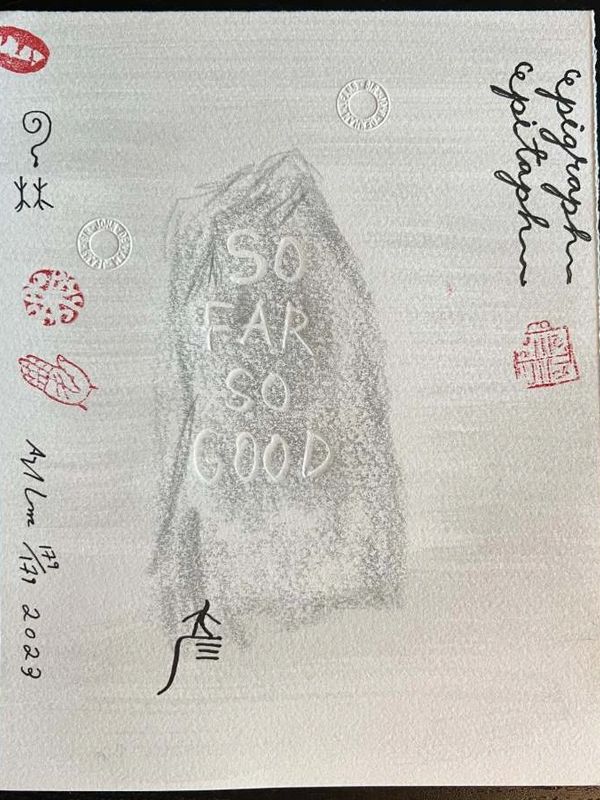 epigraph
epitaph
SO
FAR
SO
GOOD
179/179 2023